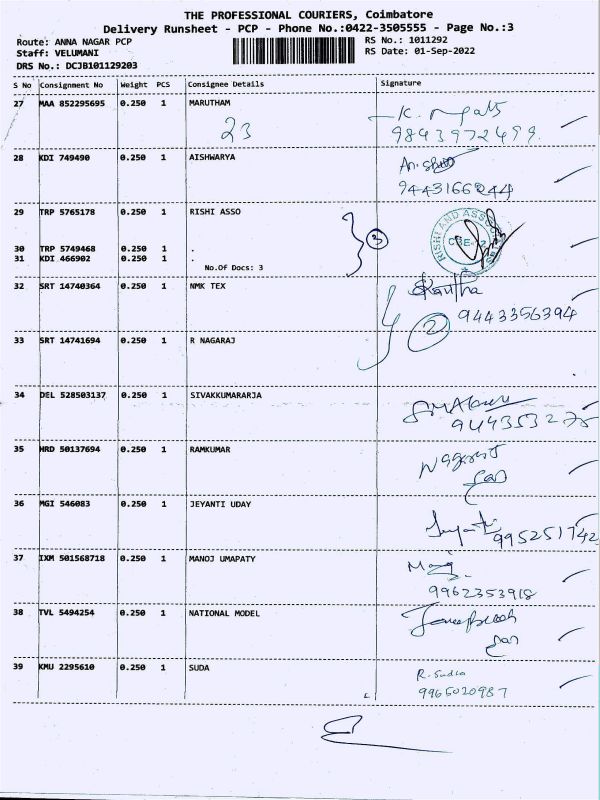 THE PROFESSIONAL COURIERS, Coimbatore
Delivery Runsheet - PCP - Phone No.:0422-3505555 - Page No.:3
Route: ANNA NAGAR PCP
RS No.: 1011292
Staff: VELUMANI
RS Date: 01-Sep-2022
DRS No.: DCJB101129203
S No Consignment No Weight PCS Consignee Details Signature
27 MAA 852295695 0.250 1 MARUTHAM
23
9843972499
28 KDI 749490 0.250 1 AISHWARYA
9443166244
29 TRP 5765178 0.250 1 RISHI ASSO
3
RISHI AND ASSO
CBE-
30 TRP 5749468 0.250 1 .
31 KDI 466902 0.250 1 .
No.Of Docs: 3
32 SRT 14740364 0.250 1 NMK TEX
2
9443356394
33 SRT 14741694 0.250 1 R NAGARAJ
34 DEL 528503137 0.250 1 SIVAKKUMARARJA
35 HRD 50137694 0.250 1 RAMKUMAR
36 MGI 546083 0.250 1 JEYANTI UDAY
995251742
37 IXM 501568718 0.250 1 MANOJ UMAPATY
9962353918
38 TVL 5494254 0.250 1 NATIONAL MODEL
39 KMU 2295610 0.250 1 SUDA
R. Sudha
9965020987